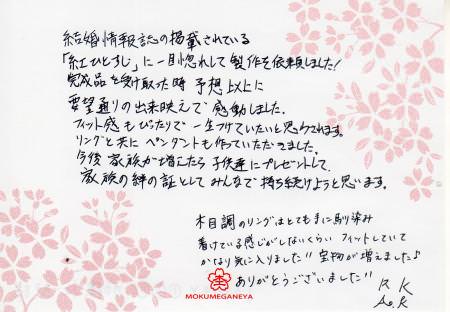 結婚情報誌の掲載されている
「紅ひとすじ」に一目惚れして製作を依頼しました!
完成品を受け取った時 予想以上に
要望通りの出来映えで感動しました。
フィット感もぴったりで一生つけていたいと思わされます。
リングと共にペンダントも作っていただきました。
今後 家族が増えたら 子供達にプレゼントして、
家族の絆の証としてみんなで持ち続けようと思います。
木目調のリングはとても手に馴染み
着けている感じがしないくらい フィットしていて
かなり気に入りました!! 宝物が増えました♪
ありがとうございました!!
R K
A.K
MOKUMEGANEYA